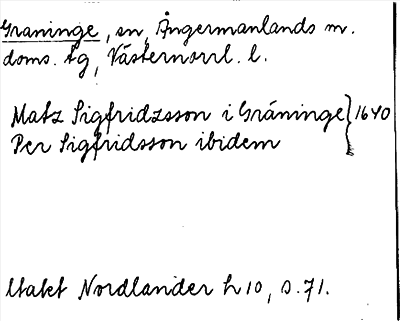 Graninge, sn, Ångermanlands m.
doms. tg, Västernorrl. l.
Matz Sigfridzsson i Gråninge } 1640
Per Sigfridsson ibidem
Utakt Nordlander h 10, s. 71.